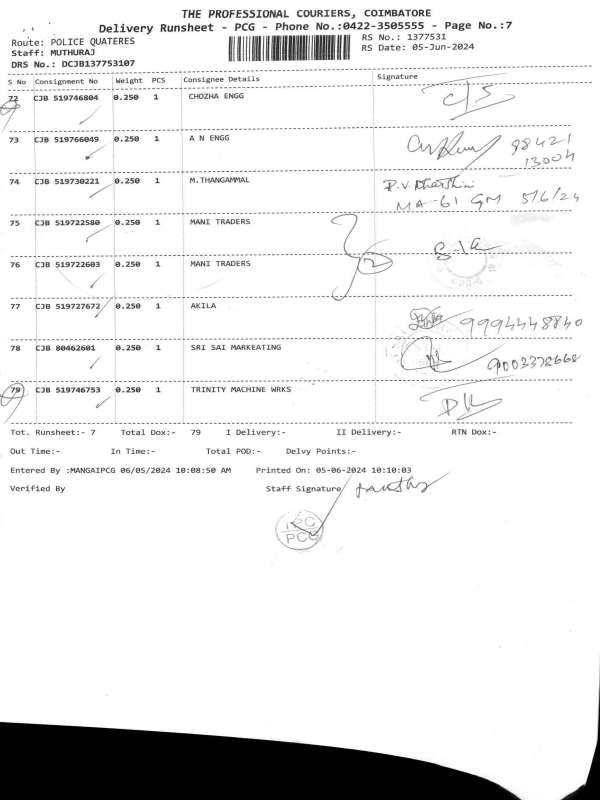 THE PROFESSIONAL COURIERS, COIMBATORE
Delivery Runsheet - PCG - Phone No.:0422-3505555 - Page No.:7
Route: POLICE QUATERES
RS No.: 1377531
Staff: MUTHURAJ
RS Date: 05-Jun-2024
DRS No.: DCJB137753107
S No Consignment No Weight PCS Consignee Details Signature
72 CJB 519746804 0.250 1 CHOZHA ENGG
73 CJB 519766049 0.250 1 A N ENGG 98421
13004
74 CJB 519730221 0.250 1 M.THANGAMMAL P.V.Dharshini
MA-61 GM 5/6/24
75 CJB 519722580 0.250 1 MANI TRADERS
76 CJB 519722603 0.250 1 MANI TRADERS 2
77 CJB 519727672 0.250 1 AKILA 9994448840
78 CJB 80462601 0.250 1 SRI SAI MARKEATING 9003378668
79 CJB 519746753 0.250 1 TRINITY MACHINE WRKS
Tot. Runsheet:- 7 Total Dox:- 79 I Delivery:- II Delivery:- RTN Dox:-
Out Time:- In Time:- Total POD:- Delvy Points:-
Entered By :MANGAIPCG 06/05/2024 10:08:50 AM Printed On: 05-06-2024 10:10:03
Verified By Staff Signature
PCG